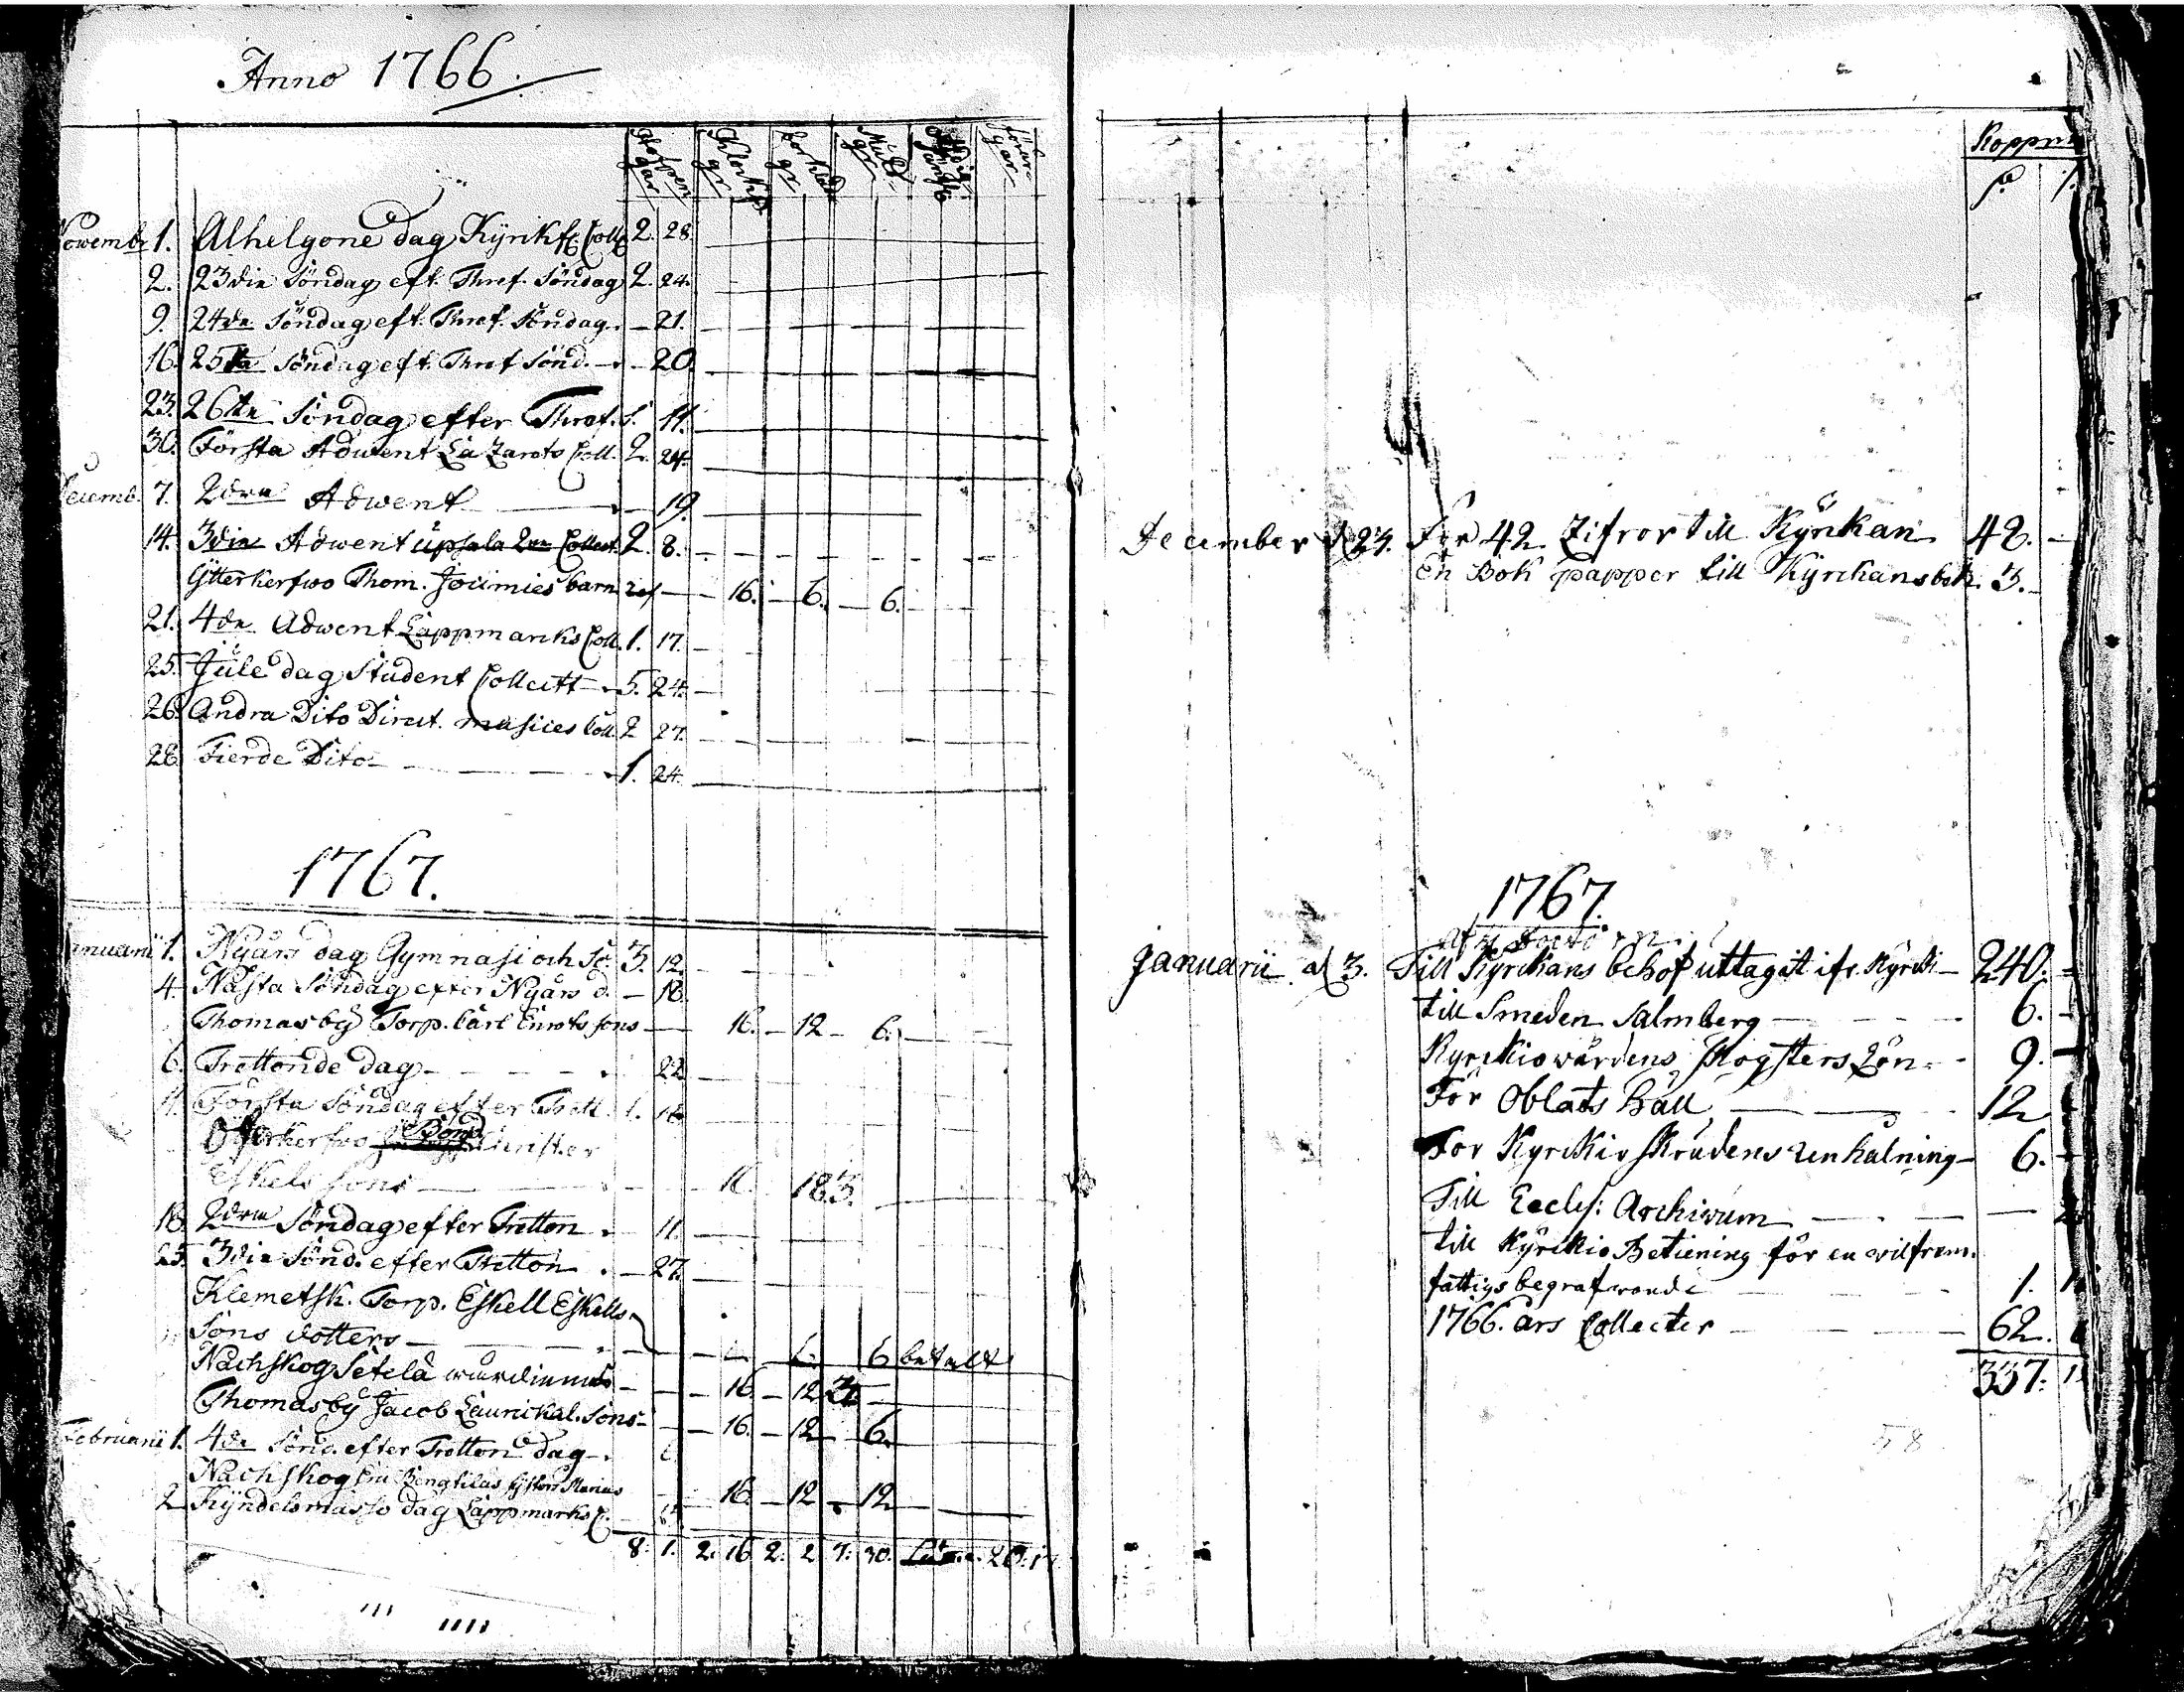 Anno 1766.
Klockr gr
Mull gr
Novembr 1. Alhelgone dag Kyrikf. Coll. 2. 28.
2. 23die Söndag eft. Thref. Söndag 2. 24.
9. 24de Söndag eft. Thref. Söndag. - 21.
16. 25te Söndag eft. Thref Sönd. - 20.
23. 26te Söndag efter Thref. S. 11.
30. Första Adwent La Zarets Coll. 2. 24.
Decemb. 7. 2dra Adwent - 19.
14. 3die Adwent upsala Collect. 2. 8.
Ytterkerfwo Thom. barn - 16. - 6. - 6.
21. 4de Adwent Lappmarks Coll. 1. 17.
25. Jule dag Student Collectt - 5. 24.
26. Andra Dito Direct. musices Coll. 2 27.
28. Fierde Dito - 1. 24.
1767.
Januarii 1. Nyårs dag Gymnasi och Sc. 3. 12.
4. Nästa Söndag efter Nyårs d. - 18.
Thomasby Torp. Carl Enrots sons - 16. - 12 - 6.
6. Trettonde dag - 22
11. Första Söndag efter Trett. 1. 16
Ytterkerfwo Bond Christer
Eskels sons 16. 18.3.
18. 2dra Söndag efter Tretton - 11.
25. 3die Sönd. efter Tretton - 27.
Klemetsk. Torp. Eskell Eskells
Sons dotters - 6. 6 betalt
Nachskog Setelä wärdinnas - 16. - 12
Thomasby Jacob Laurikal. Sons - 16. - 12 - 6.
Februarii 1. 4de Sönd. efter Tretton dag
Nachskog - 16. - 12 - 12
2 Kyndelsmässo dag Lappmarks C.
8. 1. 2. 16 2. 2 7. 30. 20. 17
Kopprm
December d 23. För 42 Zifror till Kyrkan 42. -
En Bok papper till Kyrckans beh. 3. -
1767.
Januarii d 3. Till Kyrckans behof uttagit ifr. Kyrcki- 240. -
till Smeden Salmberg - 6. -
Kyrckiowärdens Skogsters Lön - 9. -
För Oblats Bäll - 12
För Kyrckio skrudens renhalning - 6. -
Till Eccles: Archivum
till Kyrckio Betiening för en wilfrem.
fattigs begrafwande 1.
1766. års Collecter - 62.
337.
58